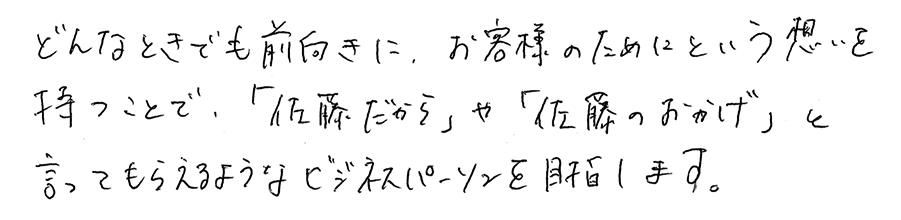 どんなときでも前向きに、お客様のためにという想いを
持つことで、「佐藤だから」や「佐藤のおかげ」と
言ってもらえるようなビジネスパーソンを目指します。